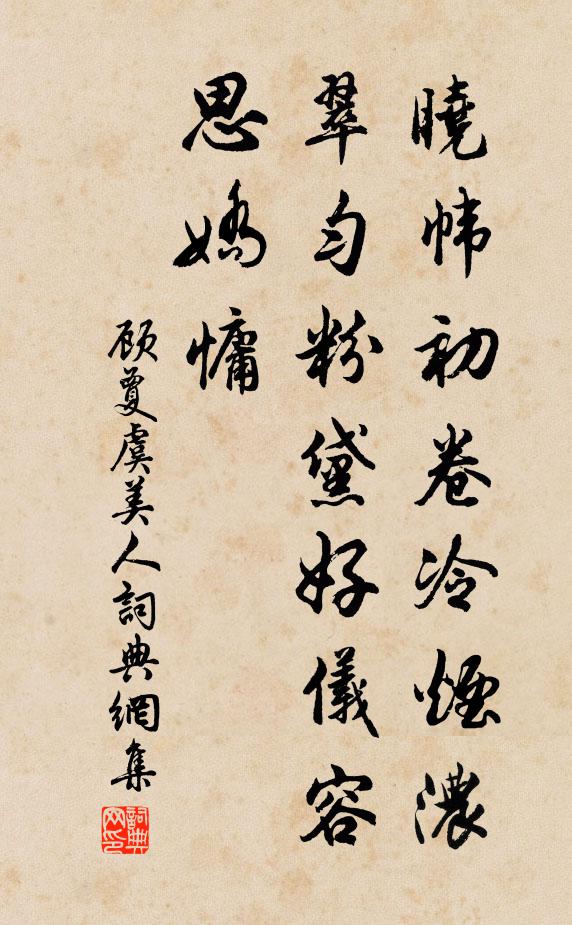 曉幃初卷冷煙濃
翠勻粉黛好儀容
思嬌慵
顧夐虞美人詞典網集
詞典网印